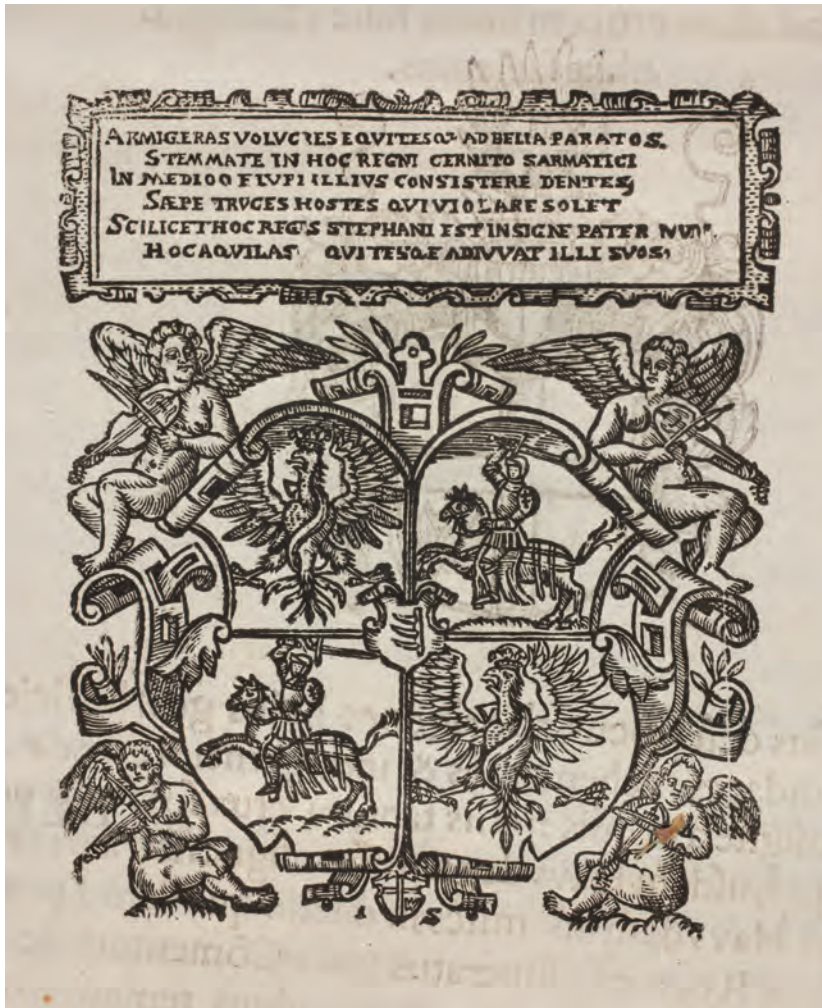 ARMIGERAS VOLVCRES EQVITESQ AD BELLA PARATOS.
STEMMATE IN HOC REGNI CERNITO SARMATICI
IN MEDIOQ ILLIVS CONSISTERE DENTES,
SÆPE TRVCES HOSTES QVI VIOLARE SOLET
SCILICET HOC REGIS STEPHANI EST INSIGNE PATER
HOC AQVILAS QVITESQE ADIVVAT ILLE SVOS,
S